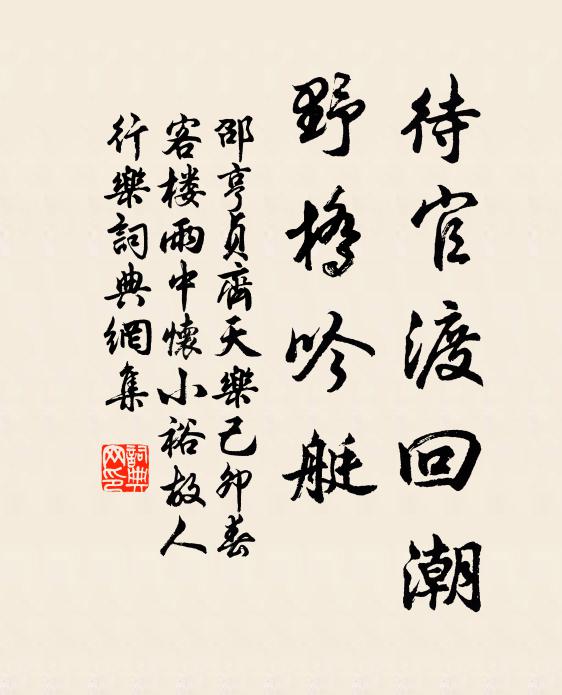 待官渡回潮
野橋吟艇
邵亨貞齊天樂己卯春
客楼雨中懷小裕故人
行樂詞典網集
詞典网印